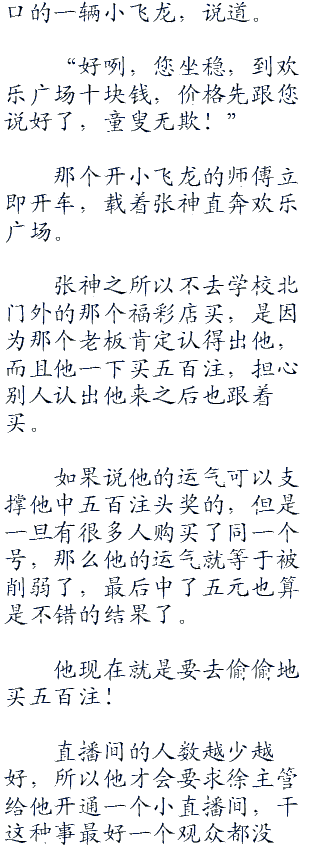 口的一辆小飞龙，说道。
“好咧，您坐稳，到欢
乐广场十块钱，价格先跟您
说好了，童叟无欺！”
那个开小飞龙的师傅立
即开车，载着张神直奔欢乐
广场。
张神之所以不去学校北
门外的那个福彩店买，是因
为那个老板肯定认得出他，
而且他一下买五百注，担心
别人认出他来之后也跟着
买。
如果说他的运气可以支
撑他中五百注头奖的，但是
一旦有很多人购买了同一个
号，那么他的运气就等于被
削弱了，最后中了五元也算
是不错的结果了。
他现在就是要去偷偷地
买五百注！
直播间的人数越少越
好，所以他才会要求徐主管
给他开通一个小直播间，干
这种事最好一个观众都没